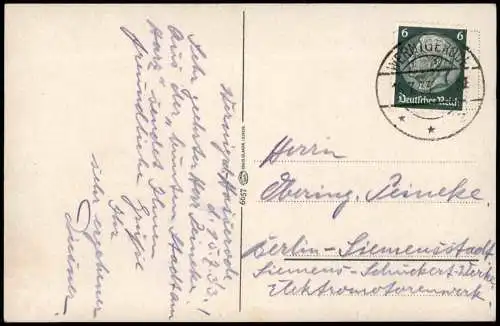 Wernigerode
d. 15.7.33.
Sehr geehrter Herr Reineke!
Aus der „bunten Stadt am
Harz" sendet Ihnen
freundliche Grüße
Ihr
sehr ergebener
6657
WERNIGERODE
6 6
Deutsches Reich
Herrn
Obering. Reineke.
Berlin-Siemensstadt
Siemens-Schuckert-Werke
Elektromotorenwerk.